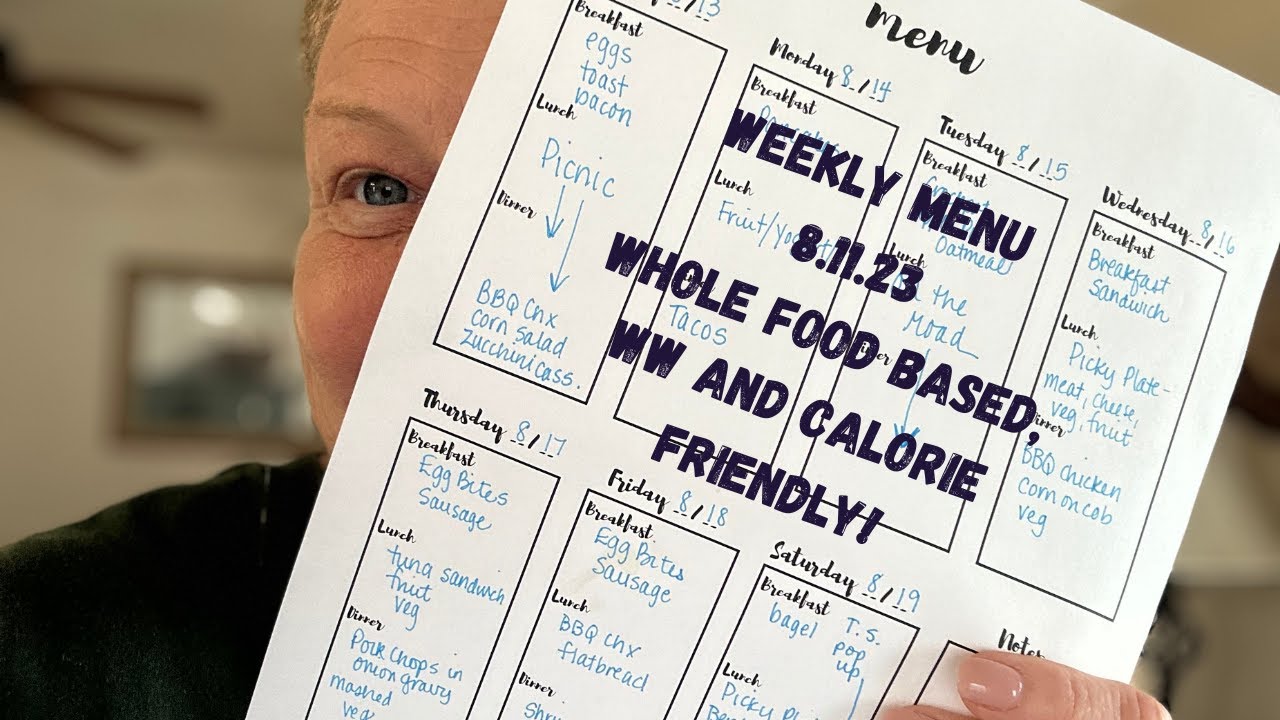 Menu
8/13
Breakfast
eggs
toast
bacon
Lunch
Picnic
Dinner
BBQ Chx
corn salad
Zucchini cass.
Monday 8/14
Breakfast
Lunch
Fruit/Yogurt
Tacos
Tuesday 8/15
Breakfast
Oatmeal
Lunch
the
Road
Wednesday 8/16
Breakfast
Breakfast
Sandwich
Lunch
Picky Plate-
meat, cheese,
veg, fruit
Dinner
BBQ chicken
Corn on cob
veg
WEEKLY MENU
8.11.23
WHOLE FOOD BASED,
WW AND CALORIE
FRIENDLY!
Thursday 8/17
Breakfast
Egg Bites
Sausage
Lunch
tuna sandwich
fruit
veg
Dinner
Pork Chops in
onion gravy
mashed
veg
Friday 8/18
Breakfast
Egg Bites
Sausage
Lunch
BBQ chx
flatbread
Dinner
Saturday 8/19
Breakfast
bagel
T.S.
pop
up
Lunch
Picky